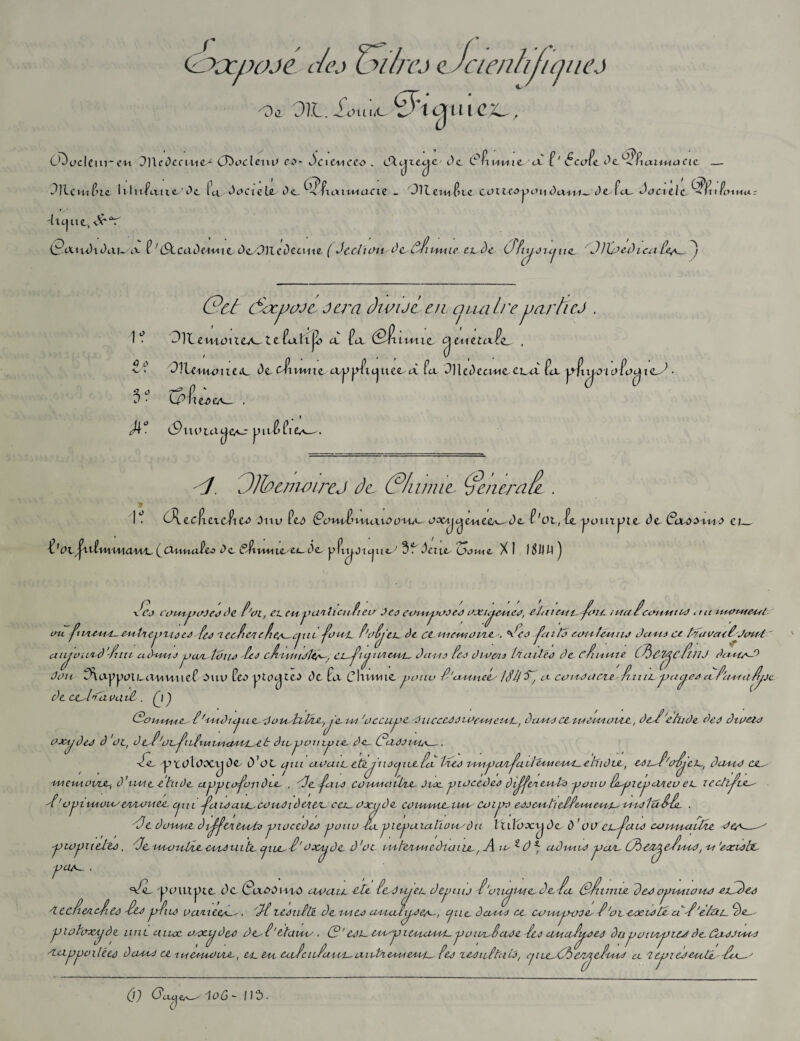 Exposé des Titres Scientifiques
De M. Louis Figuier,
Docteur-en Médecine, Docteur ès-Sciences. Agrégé de Chimie à l'École de Pharmacie —
Membre titulaire de la Société de Pharmacie _ Membre correspondant de la Société Philoma=
-tique, &ª
Candidat à l'Académie de Médecine (Section de Chimie et de Physique Médicales)
Cet Exposé sera divisé en quatre parties.
1° Memoires relatifs à la Chimie générale.
2° Memoires de chimie appliquée à la Médecine et à la physiologie.
3° Thèses.
4° Ouvrages publiés.
1. Memoires de Chimie Générale.
1° Recherches sur les Combinaisons oxygénées de l'Or, le pourpre de Cassius et
l'or fulminant (annales de Chimie et de physique 3e Série Tome XI 1844)
Les composés de l'or, et en particulier ses composés oxigénés, étaient fort mal connus au moment
où furent entreprises les recherches qui font l'objet de ce memoire. Les faits contenus dans ce travail sont
aujourd'hui admis par tous les chimistes, et figurent dans les divers traités de chimie (Berzelius dans
son Rapport annuel sur les progrès de la Chimie pour l'année 1845, a consacré huit pages à l'analyse
de ce travail. (1)
Comme l'indique son titre, je m'occupe successivement, dans ce mémoire, de l'étude des divers
oxydes d'or, de l'or fulminant et du pourpre de Cassius.
Le protoxyde d'or qui avait été jusque là très imparfaitement étudié, est l'objet, dans ce
memoire, d'une étude approfondie. Je fais connaître six procédés différents pour le préparer et rectifie
l'opinion erronée qui faisait considérer cet oxyde comme un corps essentiellement instable.
Je donne différents procédés pour la préparation du tritoxyde d'or et fais connaître ses
propriétés. Je montre ensuite que l'oxyde d'or intermédiaire, admis par Berzelius, n'existe
pas.
Le pourpre de Cassius avait été le sujet depuis l'origine de la Chimie des opinions et des
recherches les plus variées. Il résulte de mes analyses, que dans ce composé l'or existe à l'état de
protoxyde uni aux oxydes de l'étain. C'est en prenant pour base les analyses du pourpre de Cassius
rapportées dans ce memoire, et en calculant autrement les résultats, que Berzelius a représenté la
(1) Pages 106 - 113.